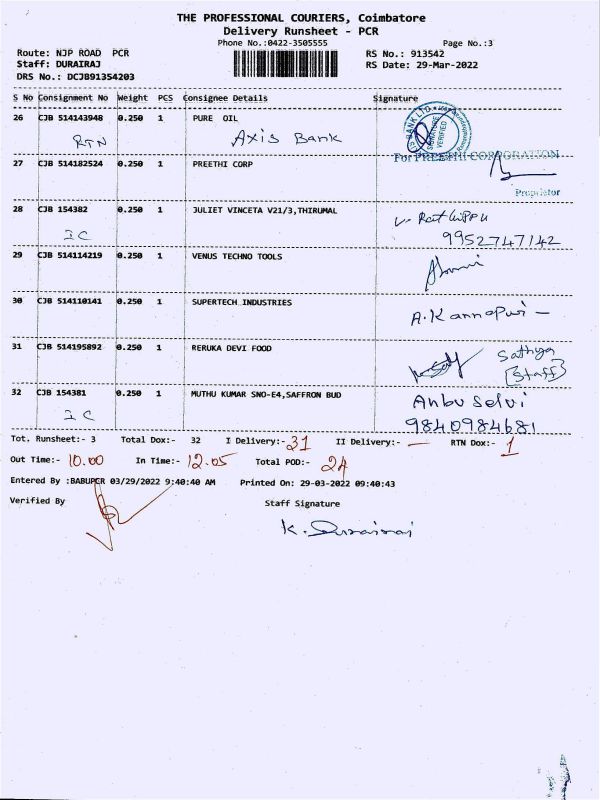 THE PROFESSIONAL COURIERS, Coimbatore
Delivery Runsheet - PCR
Phone No.:0422-3505555 Page No.:3
Route: NJP ROAD PCR RS No.: 913542
Staff: DURAIRAJ RS Date: 29-Mar-2022
DRS No.: DCJB91354203
S No Consignment No Weight PCS Consignee Details Signature
26 CJB 514143948 0.250 1 PURE OIL
RTN Axis Bank
SIGNATURE VERIFIED
For PREETHI CORPORATION
27 CJB 514182524 0.250 1 PREETHI CORP
Proprietor
28 CJB 154382 0.250 1 JULIET VINCETA V21/3,THIRUMAL
IC 9952747142
29 CJB 514114219 0.250 1 VENUS TECHNO TOOLS
30 CJB 514110141 0.250 1 SUPERTECH INDUSTRIES
31 CJB 514195892 0.250 1 RERUKA DEVI FOOD Sathya
[Staff]
32 CJB 154381 0.250 1 MUTHU KUMAR SNO-E4,SAFFRON BUD Anbu Selvi
IC 9840984681
Tot. Runsheet:- 3 Total Dox:- 32 I Delivery:- 31 II Delivery:- — RTN Dox:- 1
Out Time:- 10.00 In Time:- 12.05 Total POD:- 24
Entered By :BABUPCR 03/29/2022 9:40:40 AM Printed On: 29-03-2022 09:40:43
Verified By Staff Signature
K. Durairaj